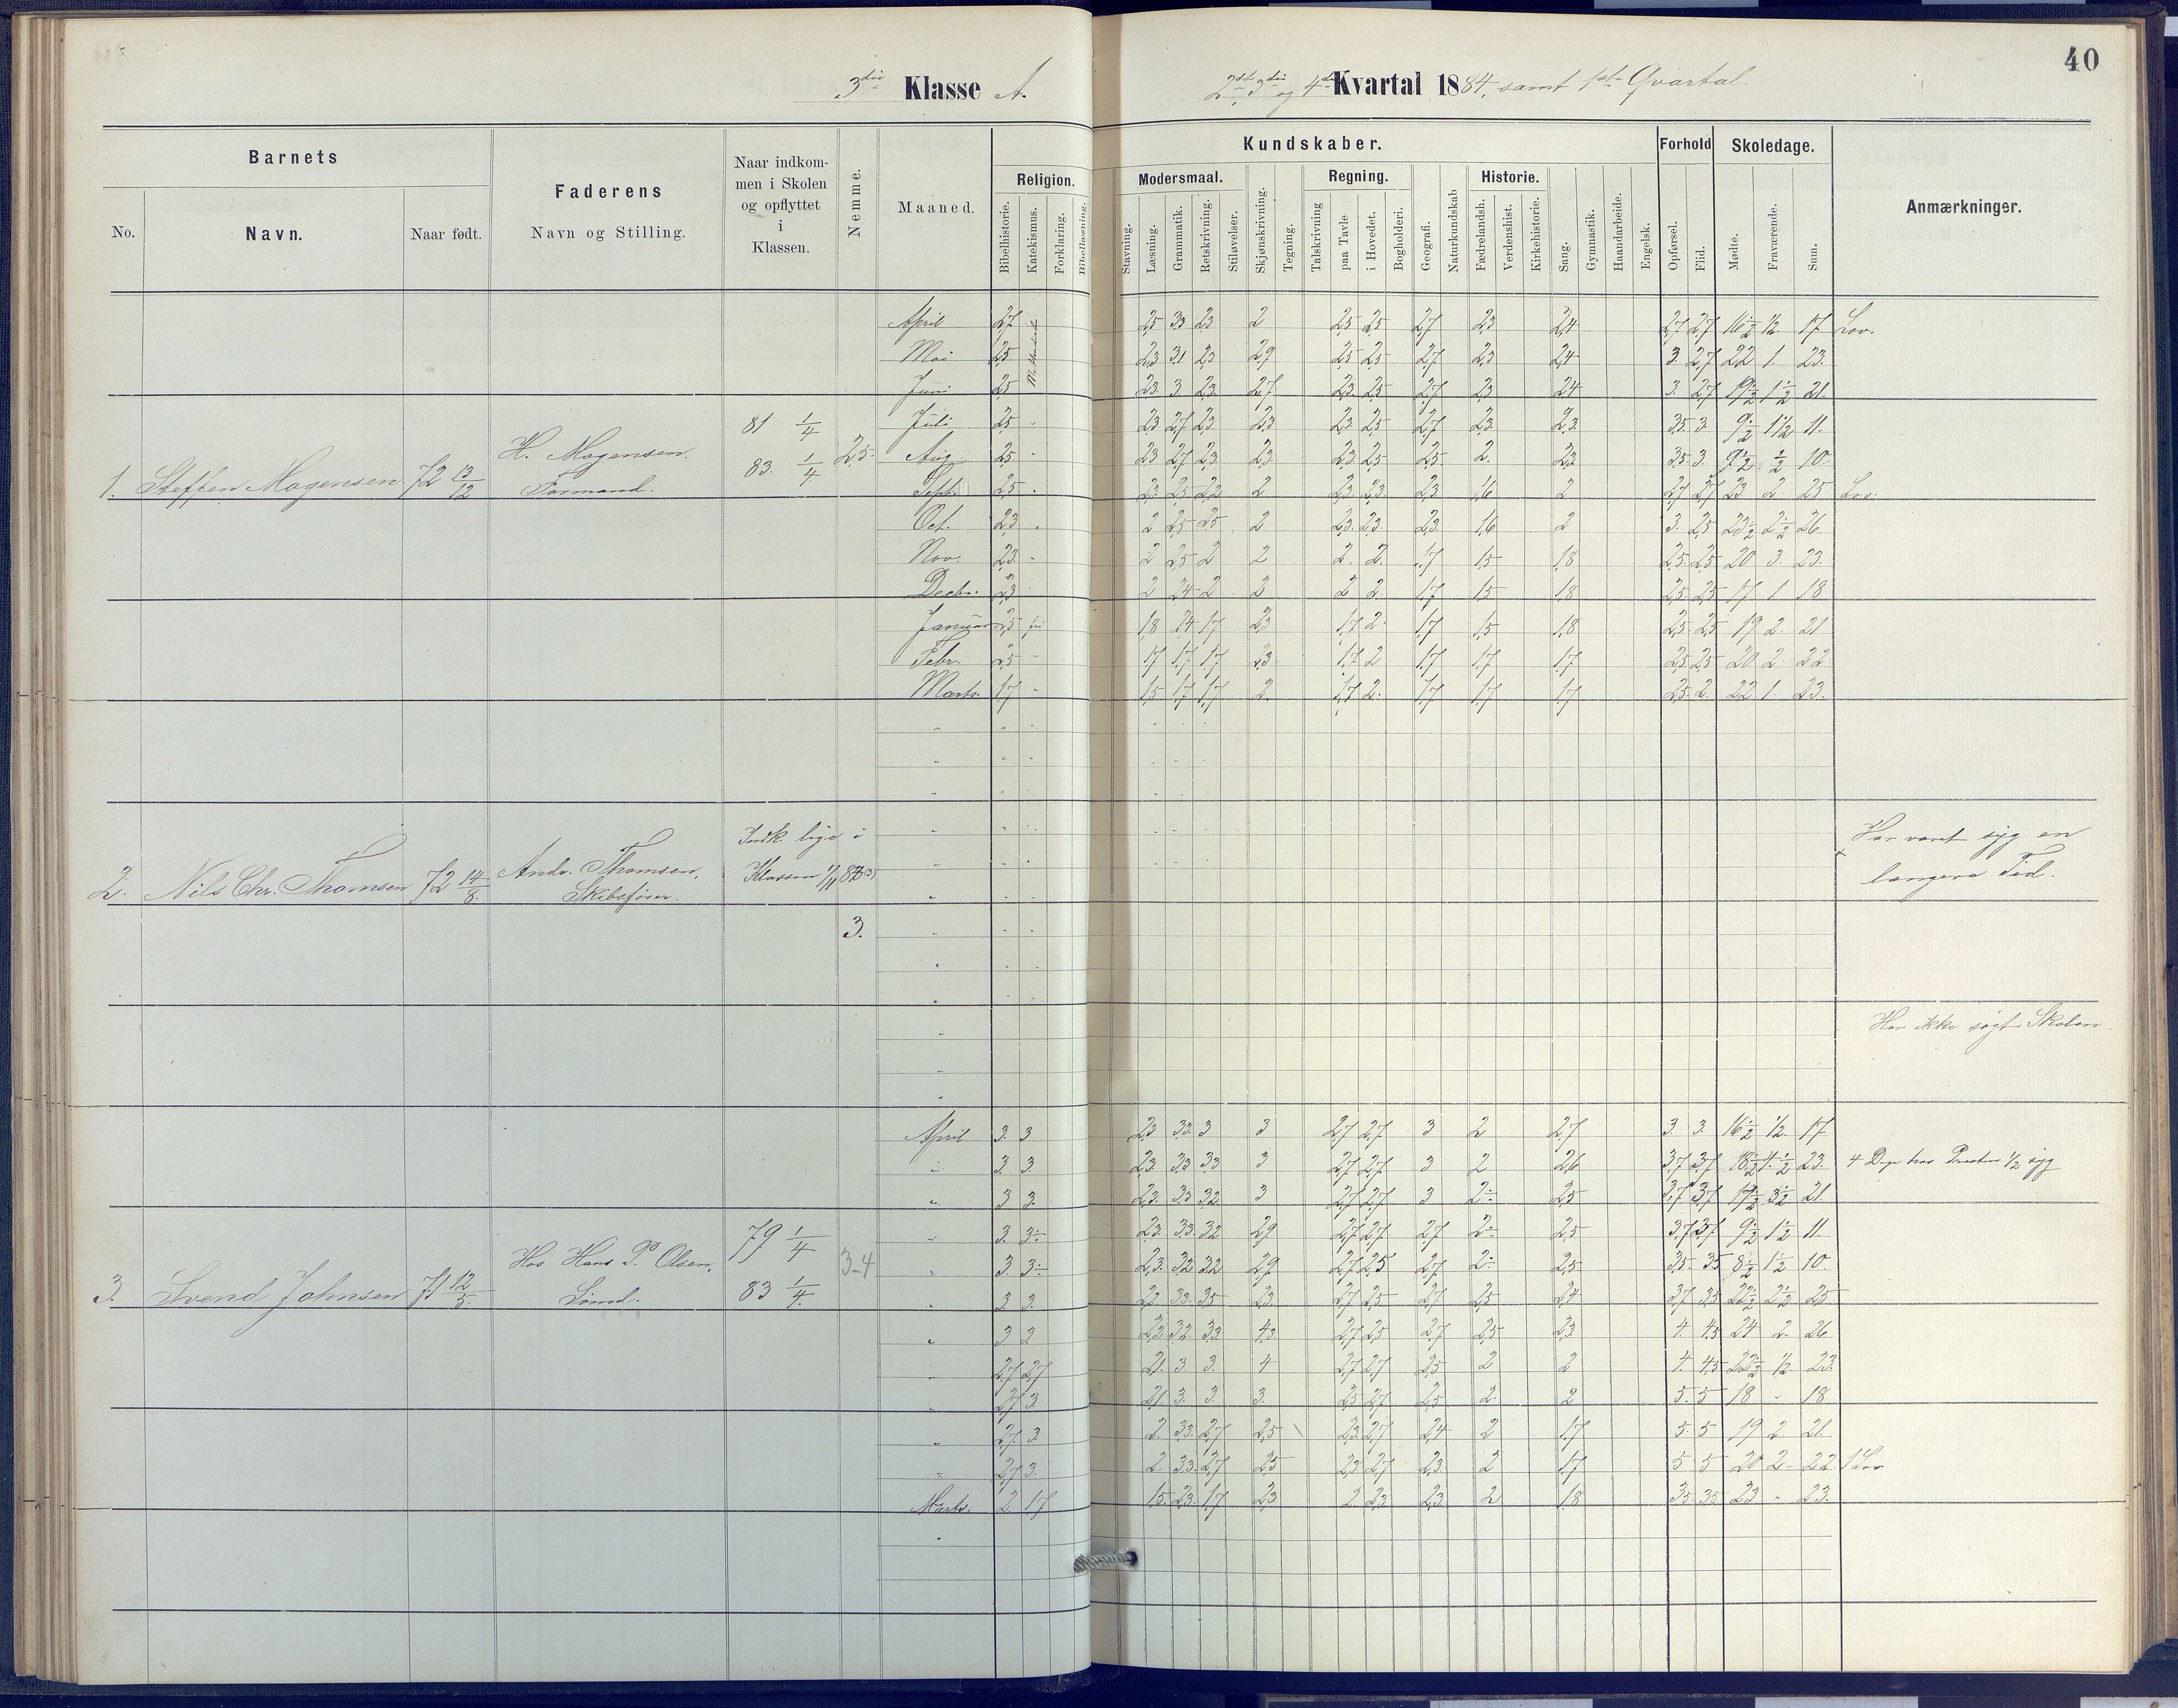 40
3die Klasse A.
2det, 3die og 4de Kvartal 1884, samt 1ste Qvartal.
Barnets
Faderens
Naar indkommen i Skolen og opflyttet i Klassen.
Nemme.
Maaned.
Kundskaber.
Forhold
Skoledage.
Anmærkninger.
No.
Navn.
Naar født.
Navn og Stilling.
Religion.
Modersmaal.
Regning.
Historie.
Bibelhistorie.
Katekismus.
Forklaring.
Bibellæsning.
Stavning.
Læsning.
Grammatik.
Retskrivning.
Stiløvelser.
Skjønskrivning.
Tegning.
Talskrivning
paa Tavle
i Hovedet.
Bogholderi.
Geografi.
Naturkundskab
Fædrelandsh.
Verdenshist.
Kirkehistorie.
Sang.
Gymnastik.
Haandarbeide.
Engelsk.
Opførsel.
Flid.
Mødte.
Fraværende.
Sum.
1. Steffen Mogensen 72 13/12 H. Mogensen. Formand. 81 1/4 83. 1/4 2,5.
April 2,7 2,5 3,3 2,3 2 2,5 2,5 2,7 2,3 2,4 2,7 2,7 16½ ½ 17 Lov.
Mai 2,5 2,3 3,1 2,3 2,9 2,5 2,5 2,7 2,3 2,4 3. 2,7 22 1. 23.
Juni 2,5 2,3 3 2,3 2,7 2,3 2,5 2,7 2,3 2,4 3. 2,7 19½ 1½ 21.
Juli 2,5 - 2,3 2,7 2,3 2,3 2,3 2,5 2,7 2,3 2,3 3,5 3 9½ 1½ 11.
Aug. 2,5 - 2,3 2,7 2,3 2,3 2,3 2,5 2,5 2. 2,3 3,5. 3. 9½ ½ 10
Sept. 2,5 - 2,3 2,5 2,2 2 2,3 2,3 2,3 1,6 2 2,7 2,7 23 2. 25 Lov.
Oct. 2,3 - 2 2,5 2,5 2 2,3 2,3 2,3 1,6 2 3. 2,5 23½ 2½ 26
Nov. 2,3 - 2 2,5 2 2 2. 2. 1,7 1,5 1,8 2,5 2,5 20 3. 23.
Decbr. 2,3 2 2,4 2 2 2 2 1,7 1,5 1,8 2,5 2,5 17. 1. 18
Januar 2,5 fri 1,8 2,4 1,7 2,3 1,7 2 1,7 1,5 1,8 2,5 2,5 19 2. 21
Febr. 2,5 - 1,7 1,7 1,7 2,3 1,7 2 1,7 1,7 1,7 2,5 2,5 20 2. 22
Marts. 1,7 - 1,5 1,7 1,7 2 1,7 2. 1,7 1,7 1,7 2,5. 2. 22 1. 23.
2. Nils Chr. Thomsen 72 14/8. Andr. Thomsen, Skibsfører. Indk. lige i Klassen 1/11 83 3.
Har været syg en
længere Tid.
Har ikke søgt Skolen
3. Svend Johnsen 71 12/5. Hos Hans P. Olsen, 79 1/4 83 1/4. 3-4
April 3. 3 2,3 3,3. 3 3 2,7 2,7 3 2 2,7 3. 3. 16½ ½. 17
" 3. 3. 2,3 3,3 3,3 3 2,7 2,7 3 2 2,6 3,7 3,7 18½ 4½ 23. 4 Dge hos Presten ½ syg
" 3 3. 2,3. 3,3 3,2 3 2,7 2,7 3 2÷ 2,5 3,7 3,7 17½ 3½ 21.
" 3. 3÷ 2,3. 3,3. 3,2 2,9 2,7 2,7. 2,7 2÷ 2,5 3,7 3,7 9½ 1½ 11.
" 3 3÷ 2,3. 3,2 3,2 2,9 2,7 2,5 2,7. 2÷ 2,5 3,5. 3,5 8½ 1½ 10.
" 3 3. 2,2 3,3. 3,5 2,3. 2,7 2,5 2,7 2,5 2,4 3,7 3,5 22½ 2½ 25
" 3 3. 2,3 3,2. 3,3 4,3. 2,7 2,5 2,7 2,5 2,3 4. 4,5 24 2. 26
" 2,7 2,7 2,1. 3. 3. 4 2,7 2,7 2,5 2 2 4. 4,5 22½ ½ 23.
" 2,7 3. 2,1 3. 3. 3. 2,5 2,7 2,5 2. 2 5. 5 18 - 18
" 2,7. 3. 2. 3,3. 2,7 2,5 2,3. 2,7 2,4 2 1,7 5. 5 19 2. 21.
" 2,7 3. 2. 3,3. 2,7 2,5 2,3 2,7 2,3 2 1,7 5 5 20 2. 22 1 Lov
Marts. 2. 1,7 1,5. 2,3. 1,7 2,3 2. 2,3 2,3. 2 1,8 3,5. 3,5 23 " 23.